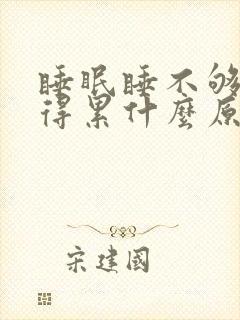 睡眠睡不够
得累什麼原
宋建國